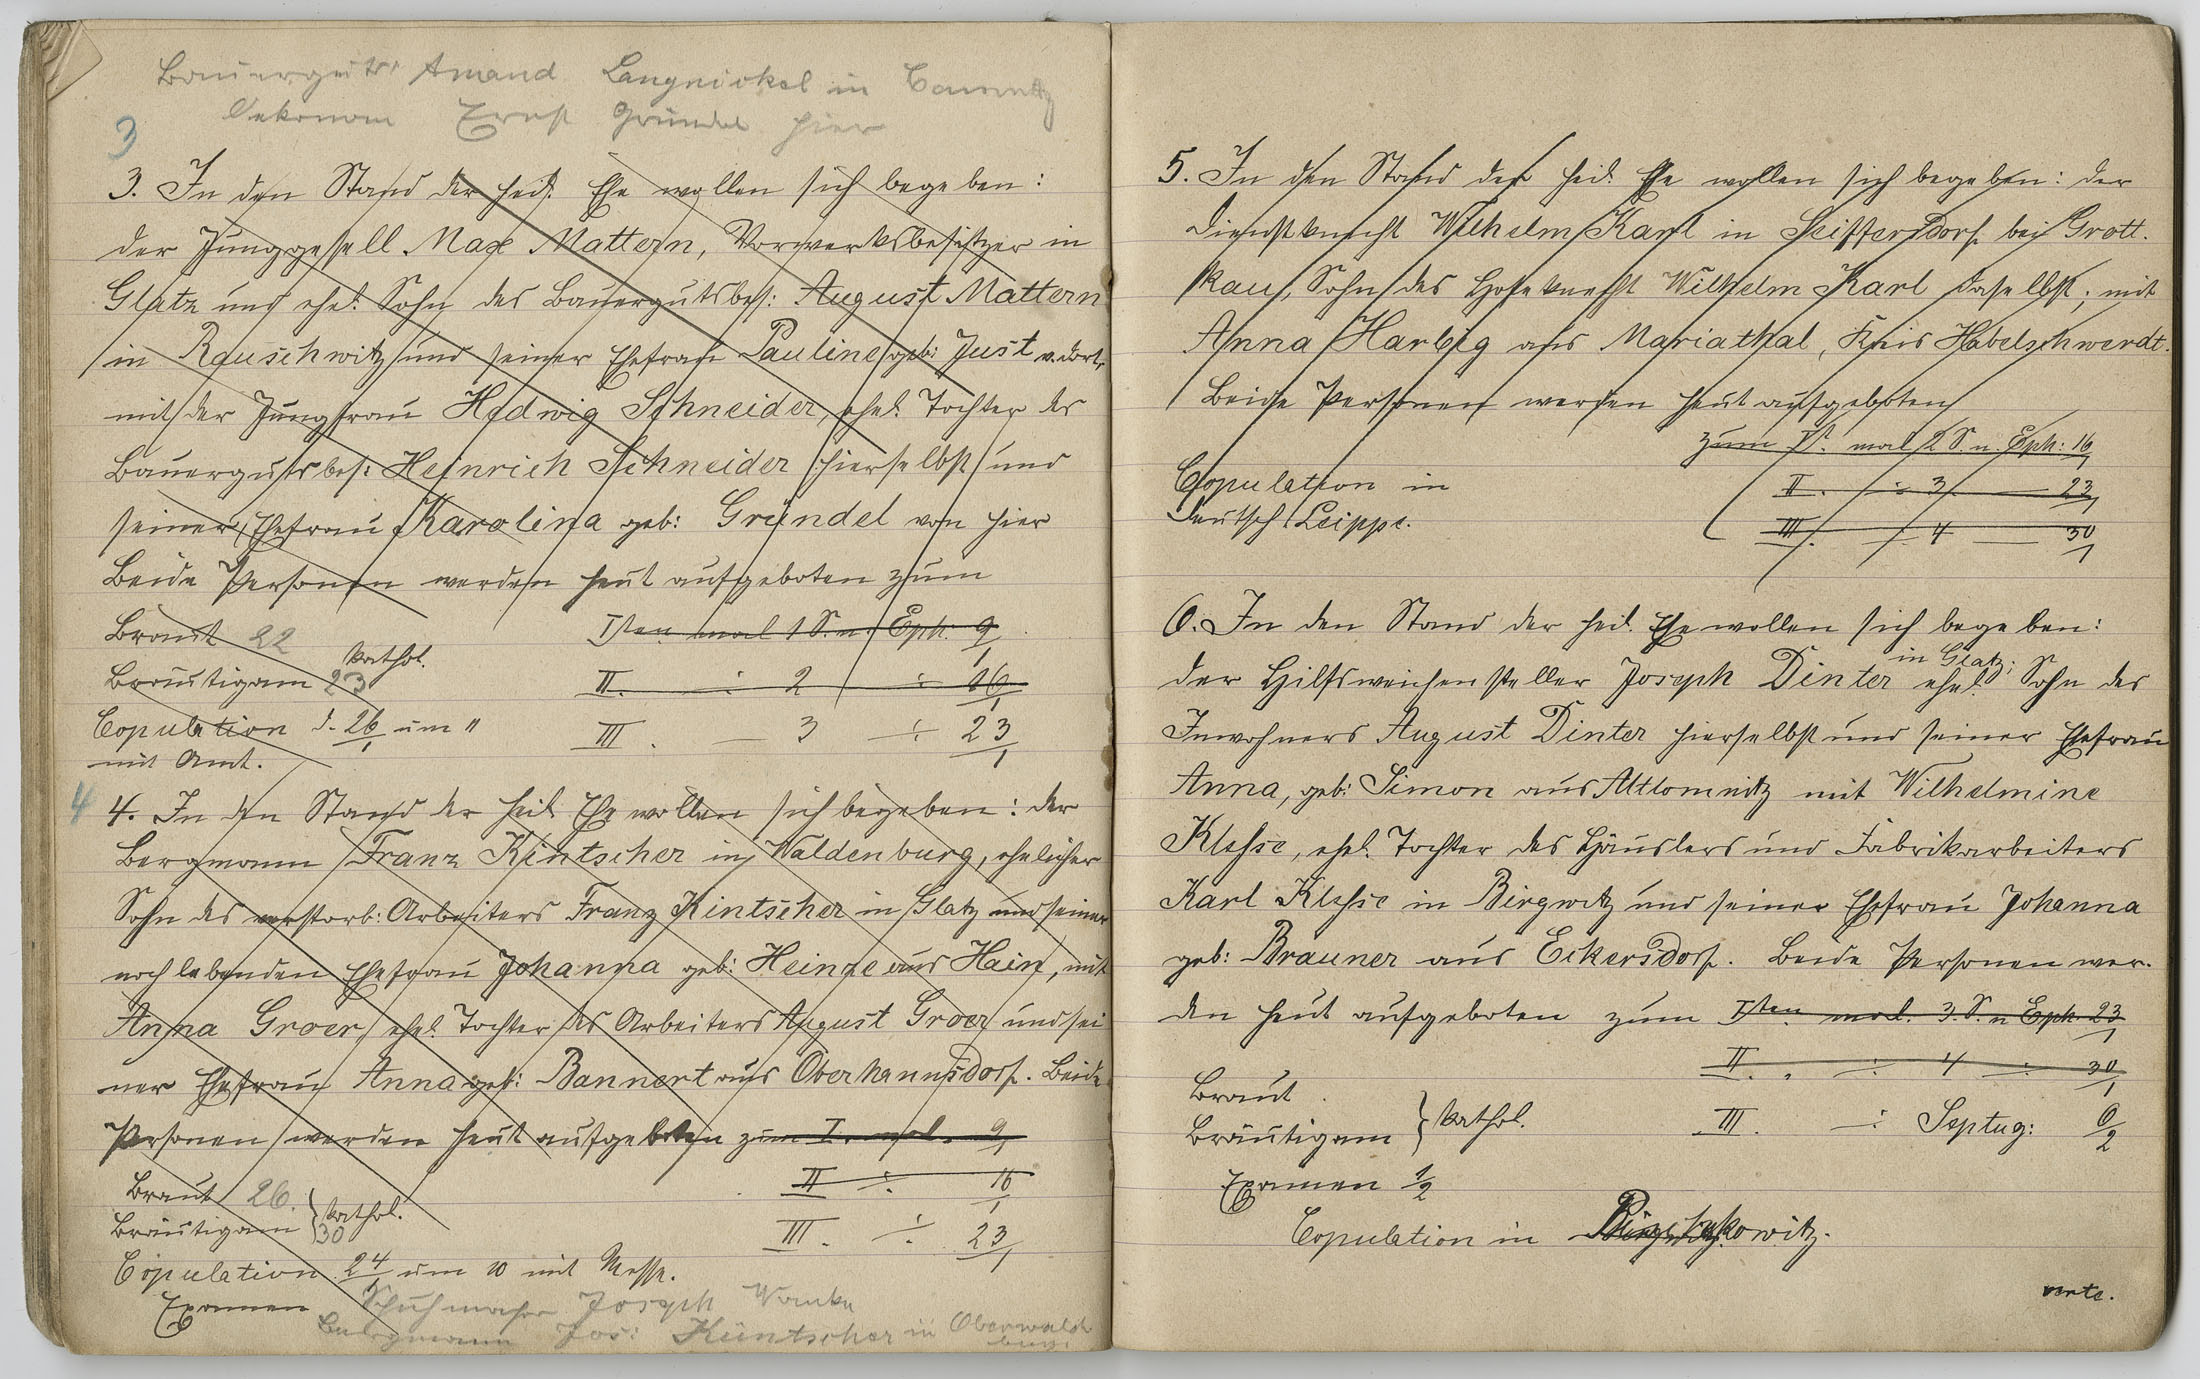 Bauerguts. Amand Langnickel in
Oekonom Ernst Gründel hier
3
3. In den Stand der heil. Ehe wollen sich begeben:
der Junggesell Max Mattern, Vorwerksbesitzer in
Glatz und ehel. Sohn des Bauergutsbes: August Mattern
in Rauschwitz und seiner Ehefrau Pauline geb: Just v. dort.
mit der Jungfrau Hedwig Schneider, ehel. Tochter des
Bauergutsbes: Heinrich Schneider hierselbst und
seiner Ehefrau Karolina geb: Gründel von hier
Beide Personen werden heut aufgeboten zum
Braut 22 Isten mal 1 S. n. Eph. 9/1
kathol.
Bräutigam 23 II. ÷ 2 ÷ 16/1
Copulation d. 26/1 um " III. — 3 ÷ 23/1
mit Amt.
4 4. In den Stand der heil. Ehe wollen sich begeben: der
Bergmann Franz Kintscher in Waldenburg, ehelicher
Sohn des verstorb: Arbeiters Franz Kintscher in Glatz und seiner
noch lebenden Ehefrau Johanna geb: Heinze aus Hain, mit
Anna Groer, ehel. Tochter des Arbeiters August Groer und sei
ner Ehefrau Anna geb: Bannert aus Oberhannsdorf. Beide
Personen werden heut aufgeboten zum I. mal. 9/1
Braut 26. II ÷ 16/1
Bräutigam 30 } kathol. III. ÷ 23/1
Copulation 24/1 um 10 mit Messe.
Examen Schuhmacher Joseph
Bergmann Jos: Küntscher in Oberwalden
burg.
5. In den Stand der heil. Ehe wollen sich begeben: der
Dienstknecht Wilhelm Karl in Seiffersdorf bei Grott.
kau, Sohn des Hofeknecht Wilhelm Karl daselbst; mit
Anna Harbig aus Mariathal, Kreis Habelschwerdt.
Beide Personen werden heut aufgeboten
zum Ist. mal 2 S. n. Eph: 16/1
Copulation in II. ÷ 3. — 23/1
Deutsch Leippe. III. ÷ 4 — 30/1
6. In den Stand der heil. Ehe wollen sich begeben:
in Glatz;
der Hilfsweichensteller Joseph Dinter ehel. Sohn des
Inwohners August Dinter hierselbst und seiner Ehefrau
Anna, geb: Simon aus Altlomnitz mit Wilhelmine
Klesse, ehel. Tochter des Häuslers und Fabrikarbeiters
Karl Klesse in Birgwitz und seiner Ehefrau Johanna
geb: Brauner aus Eckersdorf. Beide Personen wer-
den heut aufgeboten zum Isten mal. 3. S. n Eph. 23/1
II. " ÷ 4 ÷ 30/1
Braut
Bräutigam } kathol. III. ÷ Septug: 6/2
Examen 1/2
Copulation in
verte.